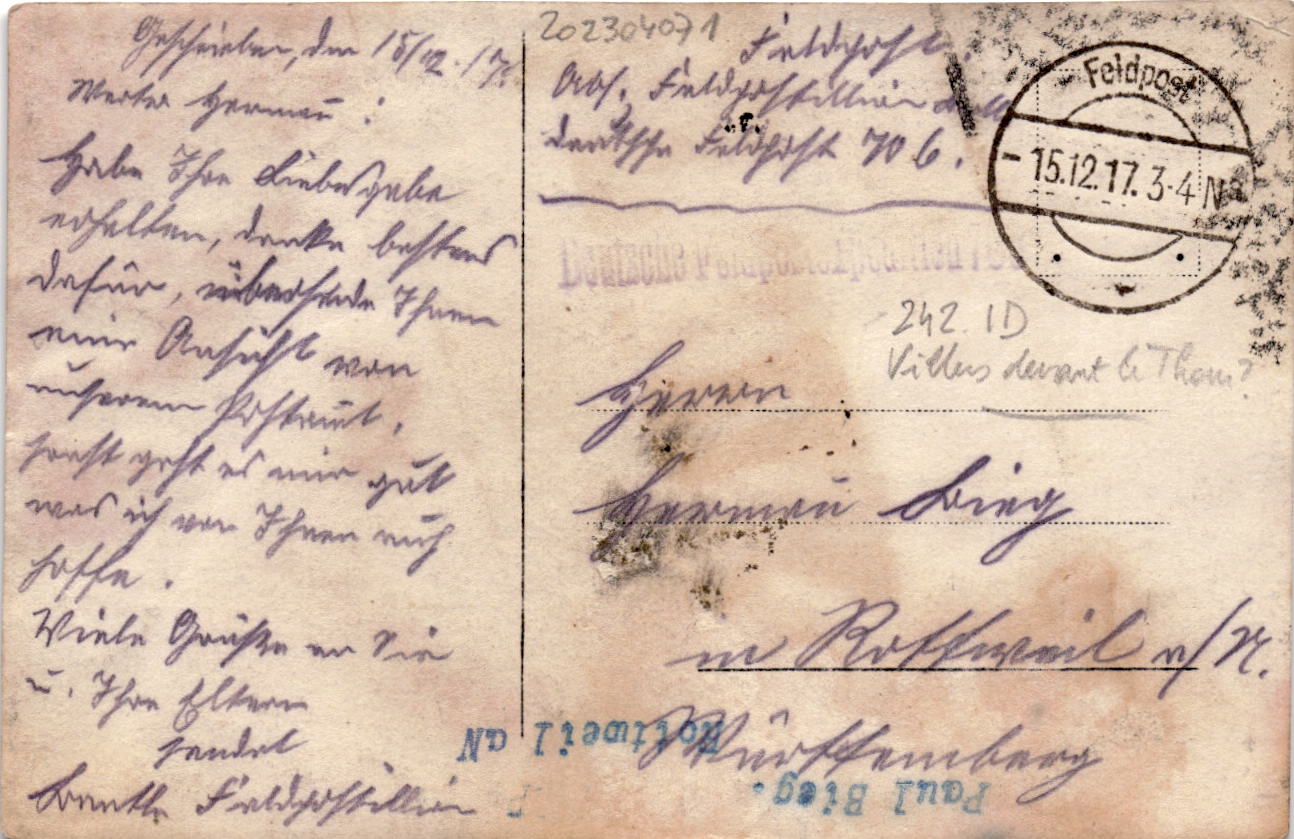 Geschrieben, den 15/12.17.
Werter Hermann!
Habe Ihre Liebesgabe
erhalten, danke bestens
dafür, übersende Ihnen
eine Ansicht von
unserem Postamt,
sonst geht es mir gut
was ich von Ihnen auch
hoffe.
Viele Grüße an Sie
u. Ihre Eltern
sendet
Feldpostillion
202304071
Feldpost
Abs. Feldpostillion
Deutsche Feldpost 706.
Feldpost
- 15.12.17. 3-4 N
Deutsche Feldpostexpedition
242. ID
Villers devant le Thour?
Herrn
Hermann Bieg
in Rottweil a/N.
Württemberg
Paul Bieg.
Rottweil aN